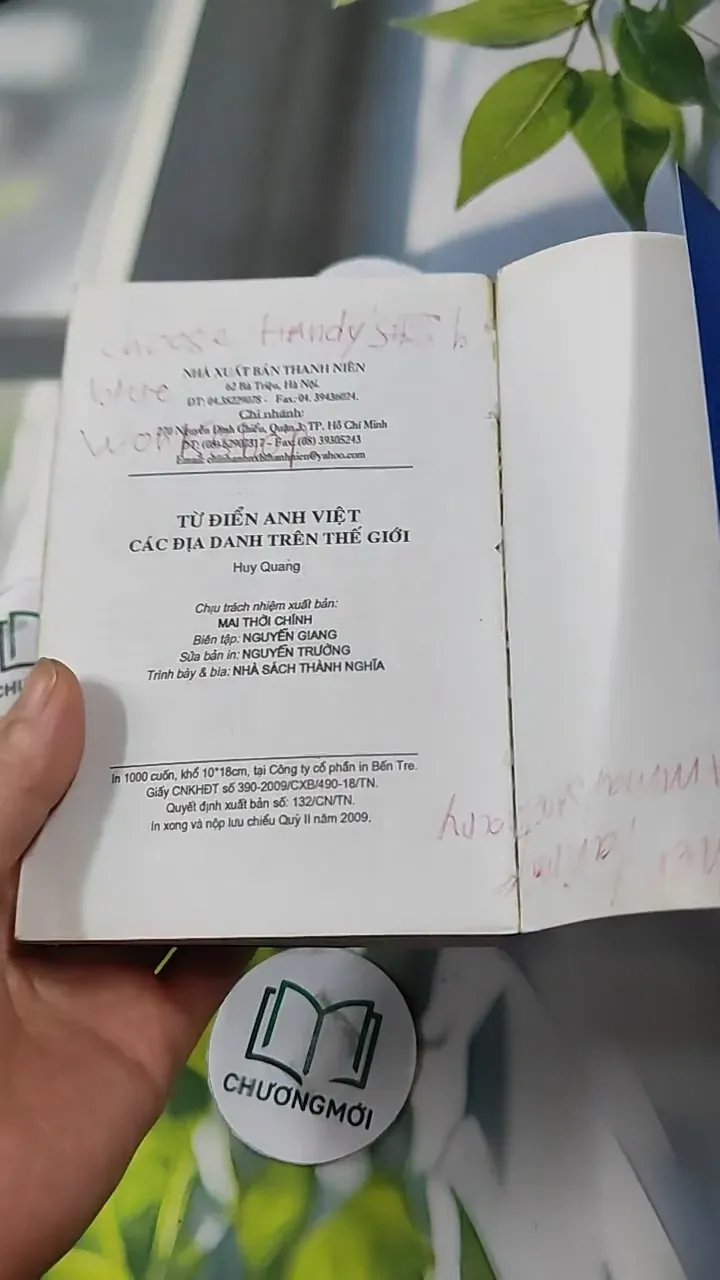 choose Handy's
NHÀ XUẤT BẢN THANH NIÊN
blue
62 Bà Triệu, Hà Nội.
ĐT: 04.38229078 - Fax: 04. 39436024.
Chi nhánh:
270 Nguyễn Đình Chiểu, Quận 3, TP. Hồ Chí Minh
ĐT: (08) - Fax: (08) 39305243
Email:
TỪ ĐIỂN ANH VIỆT
CÁC ĐỊA DANH TRÊN THẾ GIỚI
Huy Quang
Chịu trách nhiệm xuất bản:
MAI THỜI CHÍNH
Biên tập: NGUYỄN GIANG
Sửa bản in: NGUYỄN TRƯỜNG
Trình bày & bìa: NHÀ SÁCH THÀNH NGHĨA
In 1000 cuốn, khổ 10*18cm, tại Công ty cổ phần in Bến Tre.
Giấy CNKHĐT số 390-2009/CXB/490-18/TN.
Quyết định xuất bản số: 132/CN/TN.
In xong và nộp lưu chiểu Quý II năm 2009.
CHƯƠNGMỚI